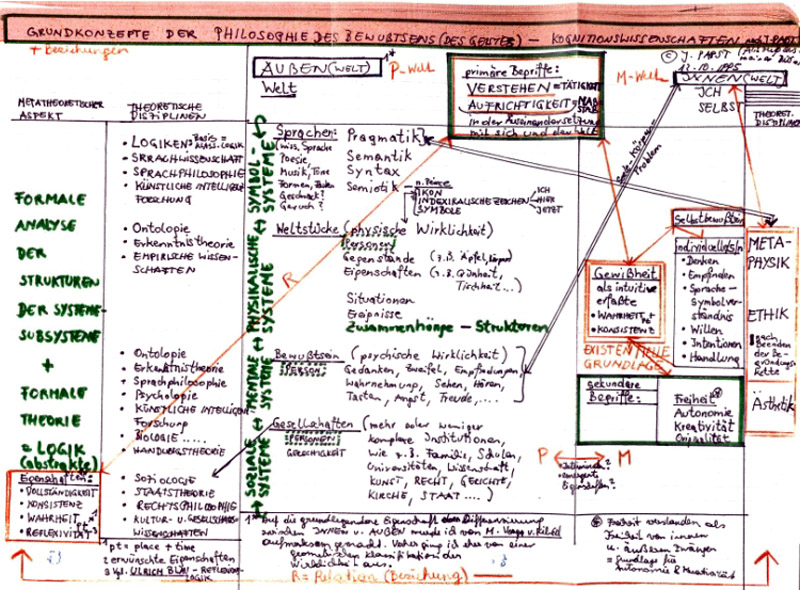 GRUNDKONZEPTE DER PHILOSOPHIE DES BEWUßTSEINS (DES GEISTES) – KOGNITIONSWISSENSCHAFTEN
+ Beziehungen
© J. PAPST
12.10.1995
AUßEN (WELT)
Welt
P-Welt
primäre Begriffe:
VERSTEHEN = TÄTIGKEIT
AUFRICHTIGKEIT = MAßSTAB
in der Auseinandersetzung
mit sich und der Welt
M-Welt
INNEN (WELT)
ICH
SELBST
METATHEORETISCHER
ASPEKT
THEORETISCHE
DISZIPLINEN
THEORET.
FORMALE
ANALYSE
DER
STRUKTUREN
DER SYSTEME-
SUBSYSTEME
+
FORMALE
THEORIE
= LOGIK
(abstrakte)
Eigenschaften:
• VOLLSTÄNDIGKEIT
• KONSISTENZ
• WAHRHEIT
• REFLEXIVITÄT
• LOGIKEN
• SPRACHWISSENSCHAFT
• SPRACHPHILOSOPHIE
• KÜNSTLICHE INTELLIGENZ
FORSCHUNG
• Ontologie
• Erkenntnistheorie
• EMPIRISCHE WISSEN-
SCHAFTEN
• Ontologie
• Erkenntnistheorie
• Sprachphilosophie
• Psychologie
• KÜNSTLICHE INTELLIGENZ
Forschung
• BIOLOGIE .....
• HANDLUNGSTHEORIE
• SOZIOLOGIE
• STAATSTHEORIE
• RECHTSPHILOSOPHIE
• KULTUR- U. GESELLSCHAFTS-
WISSENSCHAFTEN
SOZIALE ↔ MENTALE ↔ PHYSIKALISCHE ↔ SYMBOL-
SYSTEME ↔ SYSTEME ↔ SYSTEME ↔ SYSTEME
Sprachen:
(wiss. Sprache
Poesie
Musik, Töne
Formen, Farben
Geschmack?
Geruch?
Pragmatik
Semantik
Syntax
Semiotik
n. Peirce
IKON
INDEXIKALISCHE ZEICHEN
SYMBOLE
ICH
HIER
JETZT
Körper-
Problem
Weltstücke (physische Wirklichkeit)
Personen
Gegenstände (z.B. Äpfel, Körper)
Eigenschaften (z.B. Grünheit,
Tischheit...)
Situationen
Ereignisse
Zusammenhänge – Strukturen
R
Bewußtsein (psychische Wirklichkeit)
PERSON:
Gedanken, Zweifel, Empfindungen,
Wahrnehmung, Sehen, Hören,
Tasten, Angst, Freude, ....
Gesellschaften (mehr oder weniger
PERSONEN
GERECHTIGKEIT
komplexe Institutionen,
wie z.B. Familie, Schulen,
Universitäten, Wissenschaft,
KUNST, RECHT, GERICHTE,
KIRCHE, STAAT....)
Selbstbewußtsein
Individuelle(s)
• Denken
• Empfinden
• Sprache-
Symbolver-
ständnis
• Willen
• Intentionen
• Handlung
Gewißheit
als intuitive
erfaßte
• WAHRHEIT
• KONSISTENZ
EXISTENTIELLE
GRUNDLAGE
META-
PHYSIK
ETHIK
nach
Beenden
der Be-
gründungs-
kette
Ästhetik
sekundäre
Begriffe:
Freiheit
Autonomie
Kreativität
Originalität
P ↔ M
Eigenschaften?
1* Auf die grundlegende Eigenschaft der Differenzierung
zwischen INNEN u. AUßEN wurde ich von
aufmerksam gemacht. Vorher ging ich eher von einer
geometrischen Klassifikation der
Wirklichkeit aus.
Freiheit verstanden als
Freiheit von inneren
u. äußeren Zwängen
= Grundlage für
Autonomie & Kreativität
1 pt = place + time
2 erwünschte Eigenschaften
3 vgl. ULRICH BLAU - REFLEXIONS-
LOGIK
R = Relation (Beziehung)